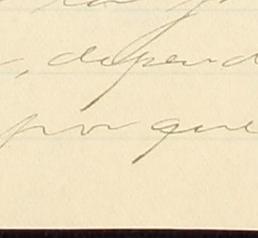 , depend
por que